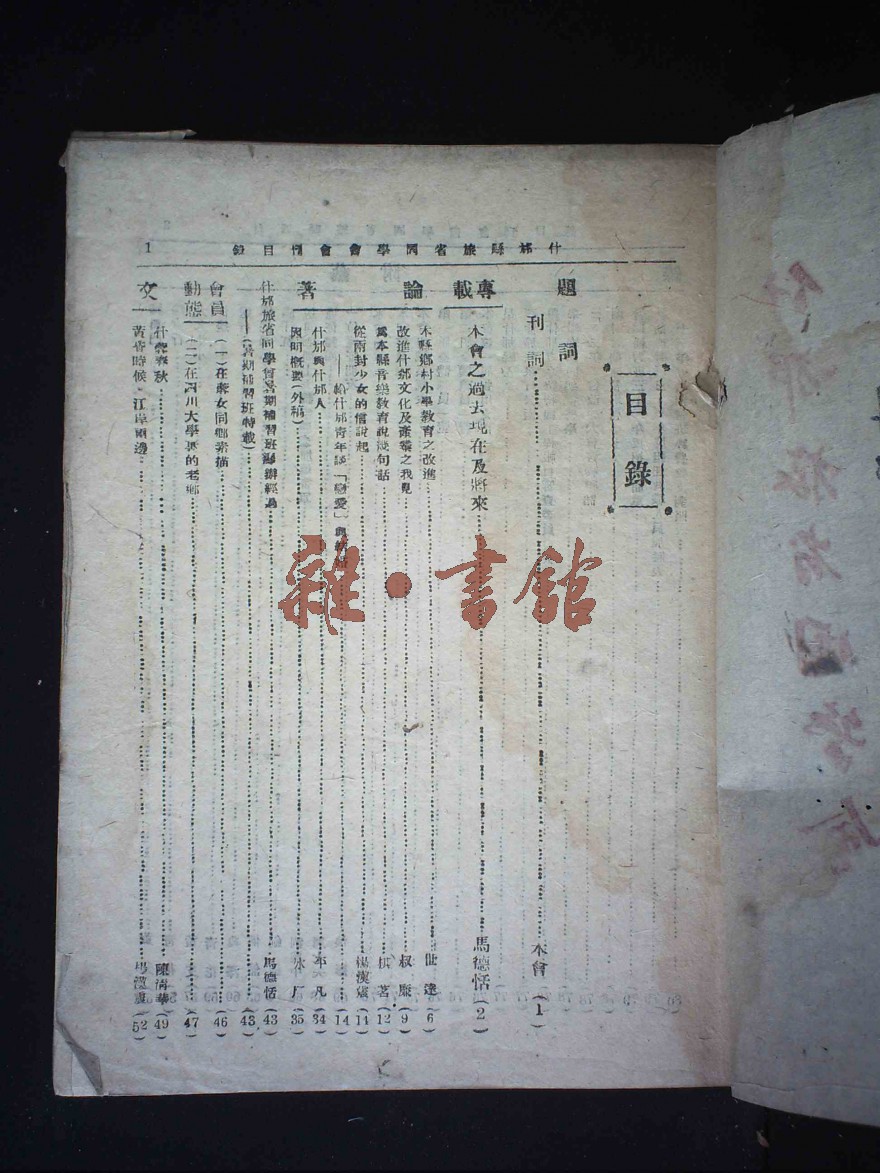 什邡縣旅省同學會會刊目錄 1
目錄
題詞
刊詞 本會(1)
專載
本會之過去現在及將來 馬德恬(2)
論著
本縣鄉村小學教育之改進 世達(6)
改進什邡文化及產業之我見 叔廉(9)
為本縣音樂教育說幾句話 棋茗(12)
從兩封少女的信說起 楊漢(14)
——給什邡青年談「戀愛」與 (14)
什邡與什邡人 平凡(34)
因明概要(外稿) 冰厂(35)
什邡旅省同學會暑期補習班辦經過 馬德恬(43)
——(暑期補習班特載) (43)
會員動態
(一)在蓉女同鄉素描 (46)
(二)在四川大學裏的老鄉 (47)
文
什邡春秋 陳清華(49)
黃昏時候·江岸兩邊 (52)
雜·書館